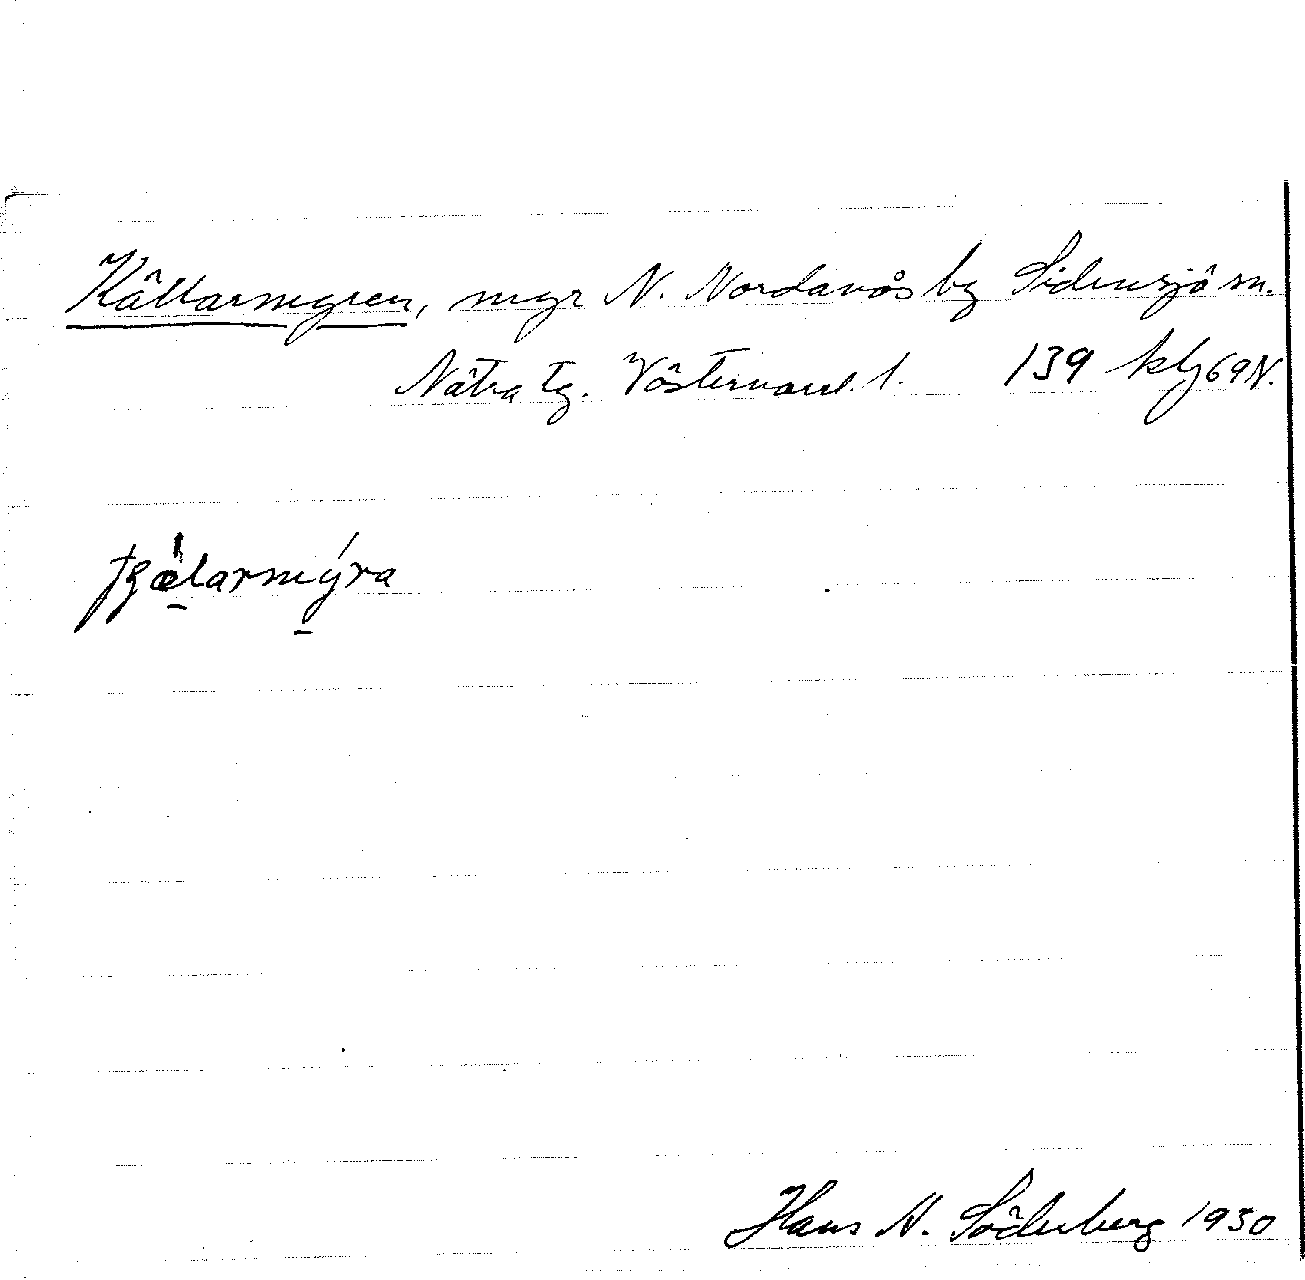 Källarmyren, myr N. Nordanås by Sidensjö sn.
Nätra tg. Västernorrl. l. 139 klj 69 N.
Hans N. Söderberg 1930